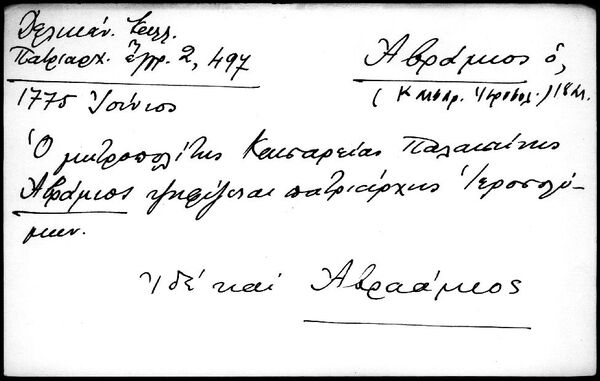 Δελικάν. Καλλ.
Πατριαρχ. Ἔγγρ. 2, 497
Ἀβράμιος ὁ,
1775 Ἰούνιος
Ὁ μητροπολίτης Καισαρείας Παλαιστίνης
Ἀβράμιος ψηφίζεται πατριάρχης Ἱεροσολύ-
μων.
Ἰδέ καί Ἀβραάμιος